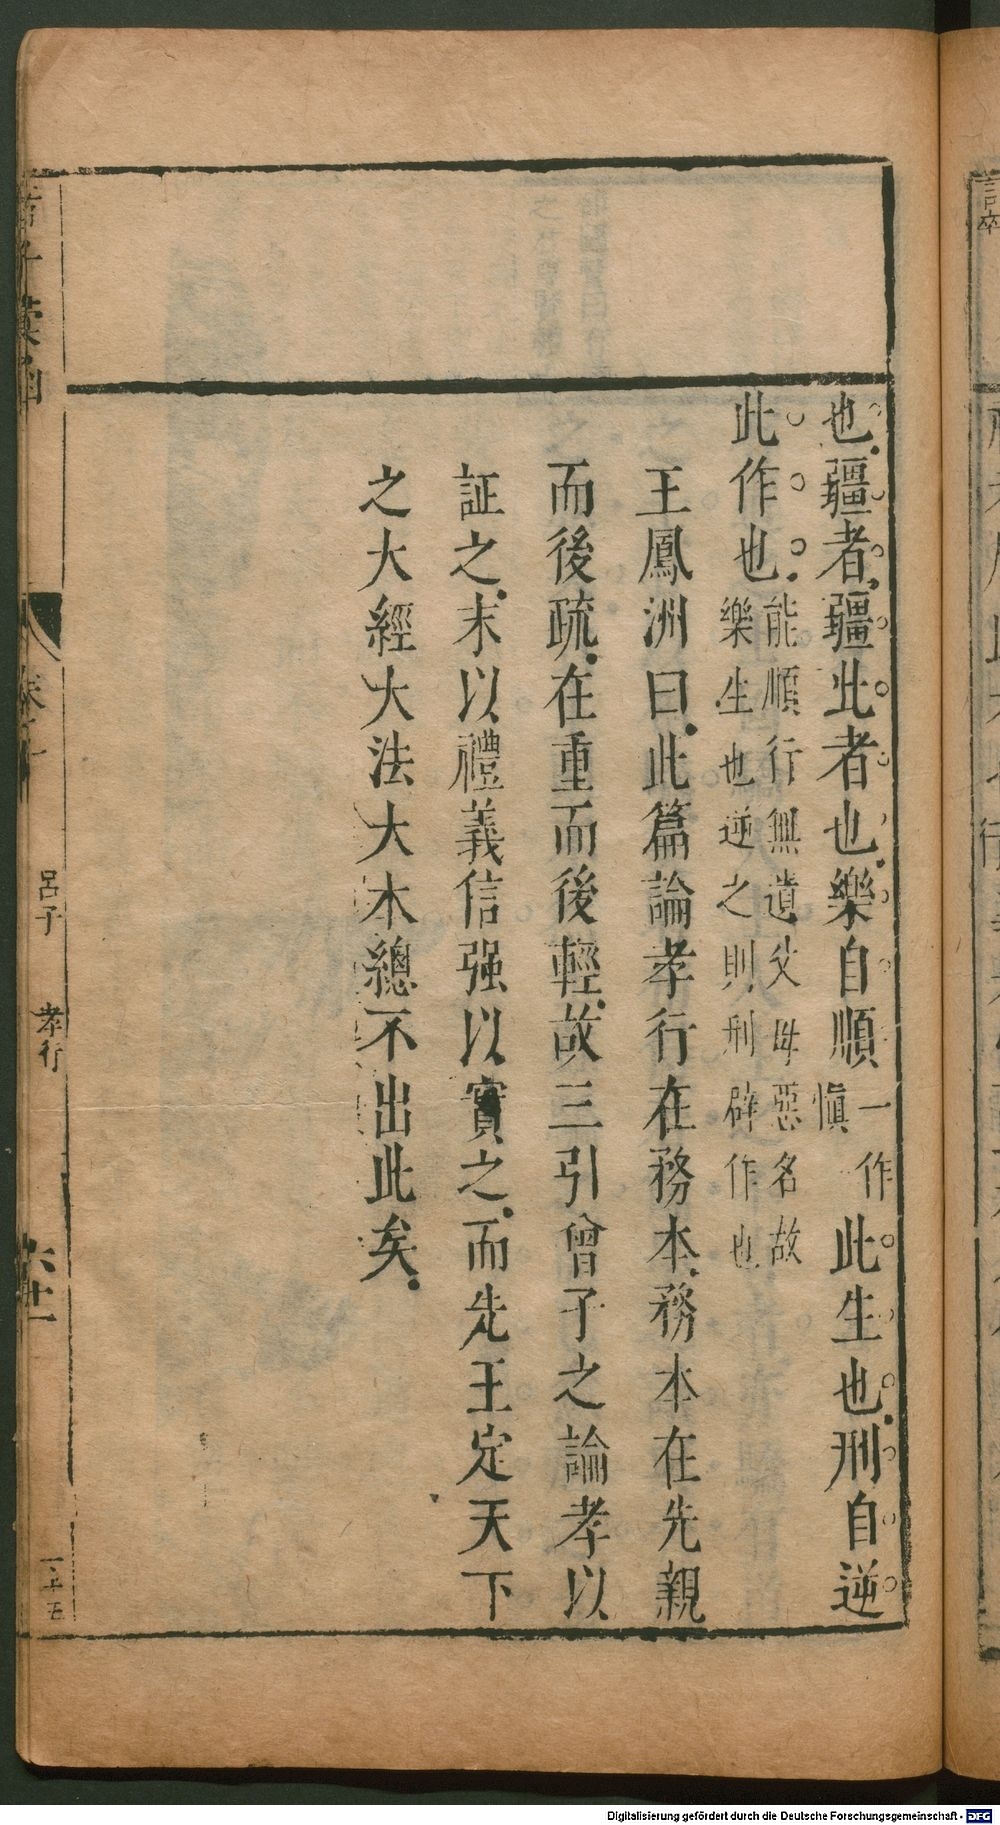 也疆者疆此者也樂自順一作慎此生也刑自逆
此作也能順行無遺父母惡名故樂生也逆之則刑辟作也
王鳳洲曰此篇論孝行在務本務本在先親
而後疏在重而後輕故三引曾子之論孝以
証之末以禮義信强以實之而先王定天下
之大經大法大本總不出此矣
呂子 孝行
Digitalisierung gefördert durch die Deutsche Forschungsgemeinschaft - DFG